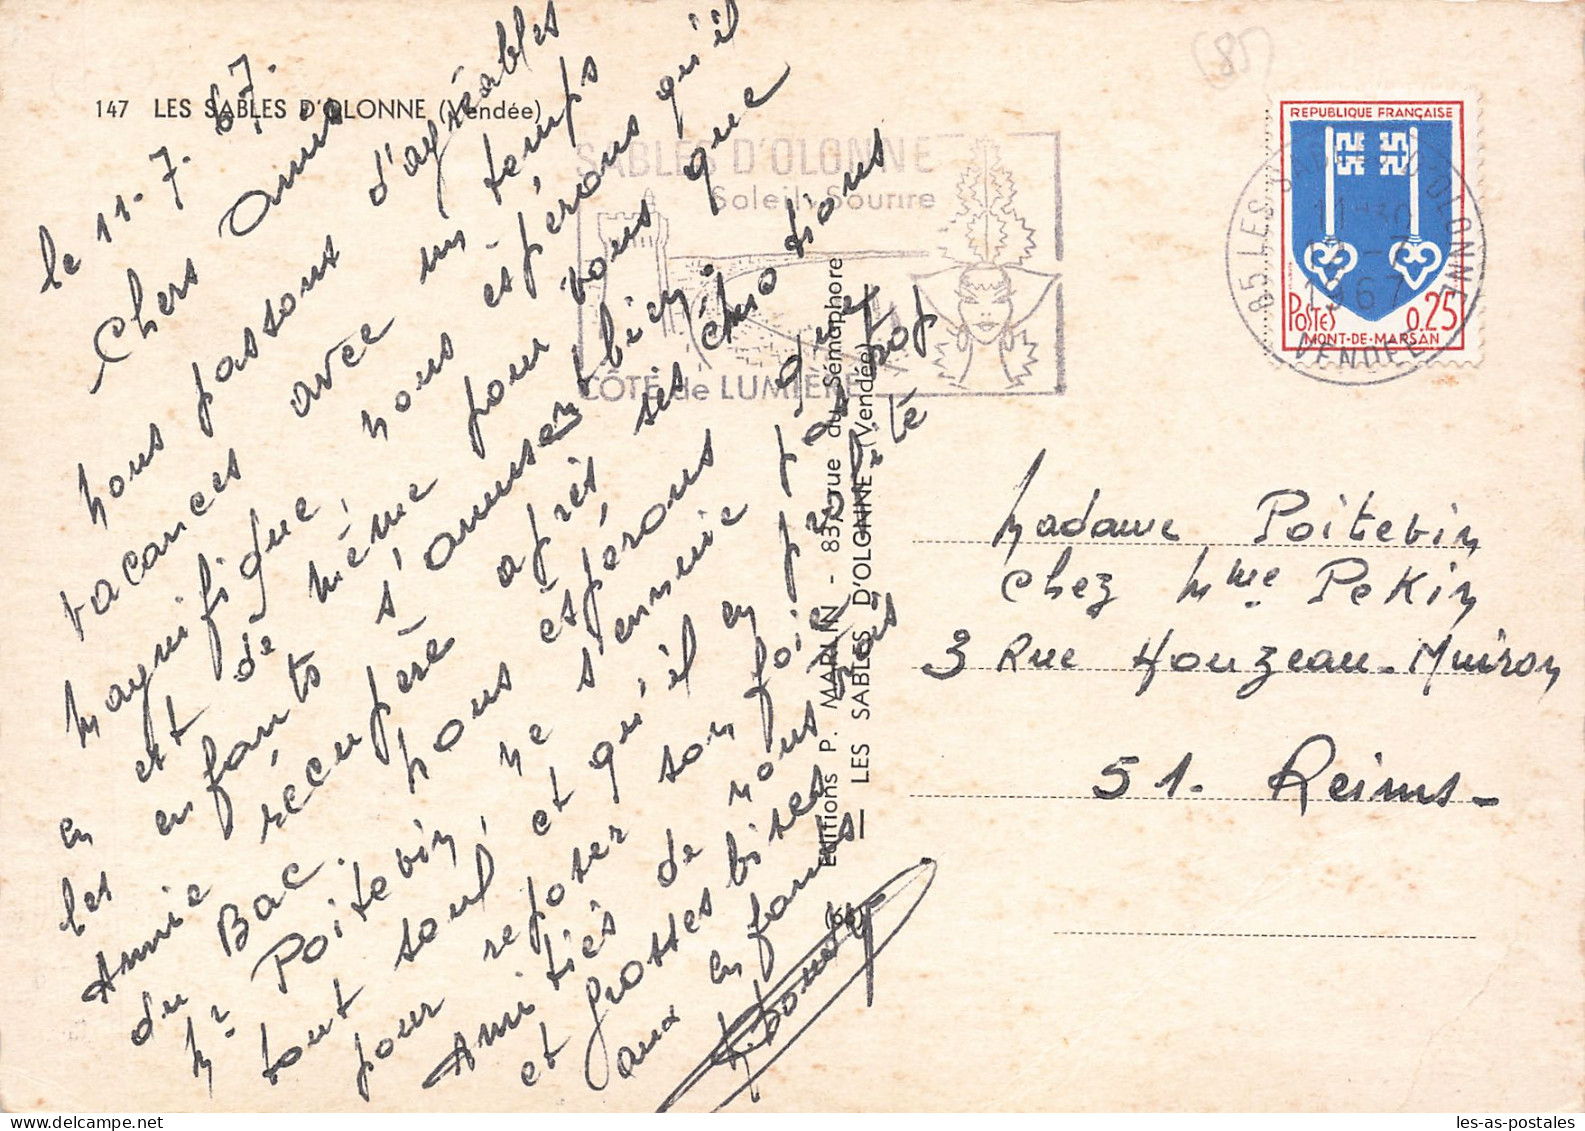 147 LES SABLES D'OLONNE (Vendée)
le 11.7.67.
Chers Amis
nous passons d'agréables
vacances avec un temps
magnifique, nous espérons qu'il
en est de même pour vous que
les enfants s'amusent bien.
Annie récupère après ses émotions
du Bac. nous espérons que
Mr Poitevin ne s'ennuie pas trop
tout seul, et qu'il en profite
pour reposer son foie
Amitiés de nous trois
et grosses bises
aux enfants
Editions P. MARLIN - 83, rue du Sémaphore
LES SABLES D'OLONNE (Vendée)
SABLES D'OLONNE
Soleil, Sourire
CÔTE de LUMIÈRE
(85)
REPUBLIQUE FRANÇAISE
POSTES 0.25
MONT-DE-MARSAN
85 LES SABLES D'OLONNE
11-30
12-7
1967
VENDEE
Madame Poitevin
chez Mme Pekin
3 Rue Houzeau-Muiron
51. Reims-
les-as-postales
delcampe.net